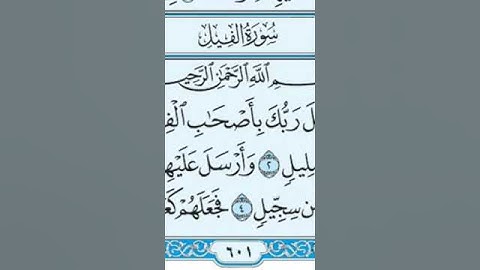 سُورَةُ الفِيلِ
ـمِ ٱللَّهِ ٱلرَّحْمَٰنِ ٱلرَّحِيـ
ـلَ رَبُّكَ بِأَصْحَٰبِ ٱلْفِـ
ـلِيلٍ ٢ وَأَرْسَلَ عَلَيْهِـ
ـن سِجِّيلٍ ٤ فَجَعَلَهُمْ كَعَـ
٦٠١